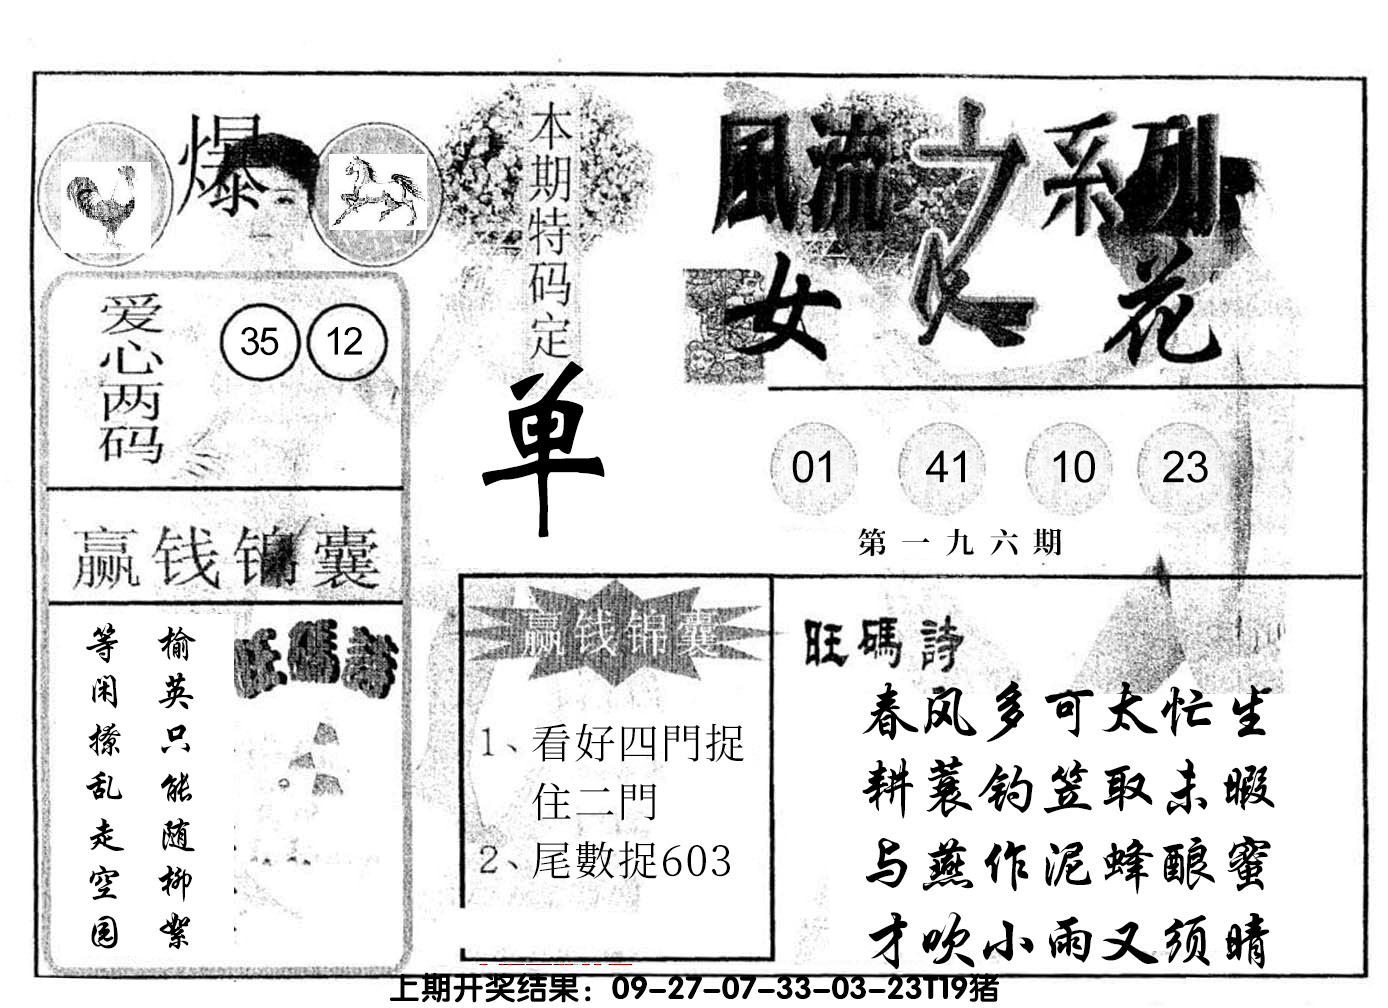 爆
本期特码定
单
風流之系列
女人花
爱心两码
35 12
01 41 10 23
第一九六期
赢钱锦囊
榆英只能随柳絮
等闲撩乱走空园
旺碼詩
赢钱锦囊
1、看好四門捉
住二門
2、尾數捉603
旺碼詩
春风多可太忙生
耕蓑钓笠取未暇
与燕作泥蜂酿蜜
才吹小雨又须晴
上期开奖结果：09-27-07-33-03-23T19猪